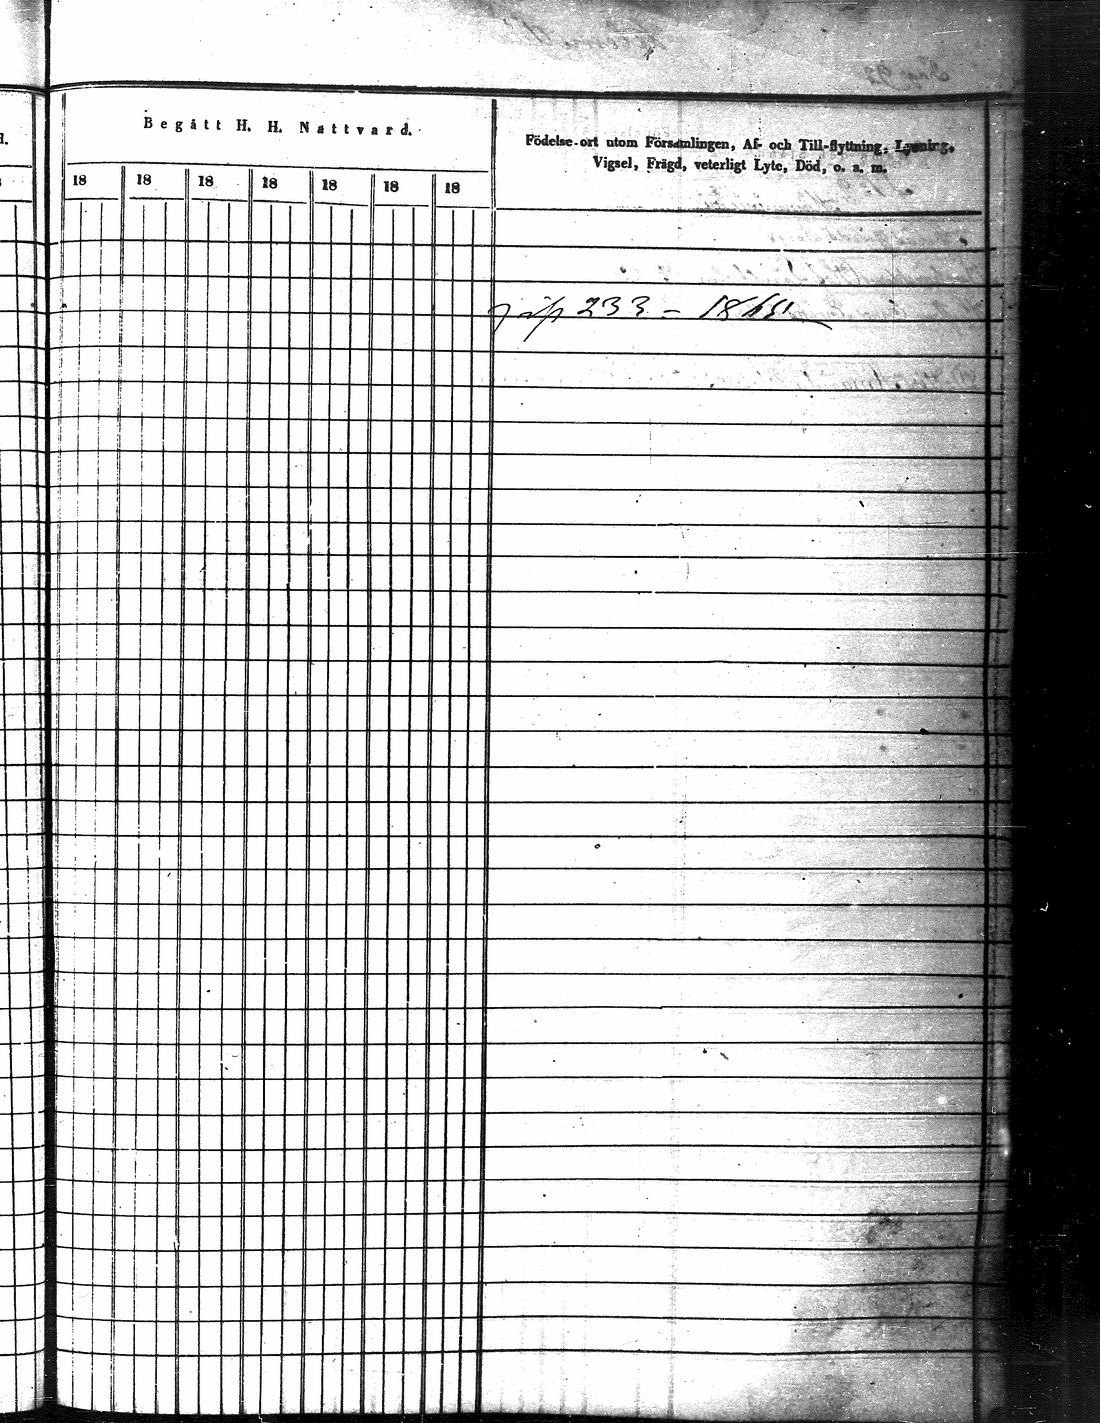 Begått H. H. Nattvard.
Födelse-ort utom Församlingen, Af- och Till-flyttning, Lysning,
Vigsel, Frägd, veterligt Lyte, Död, o. s. m.
18 18 18 18 18 18 18
233 –